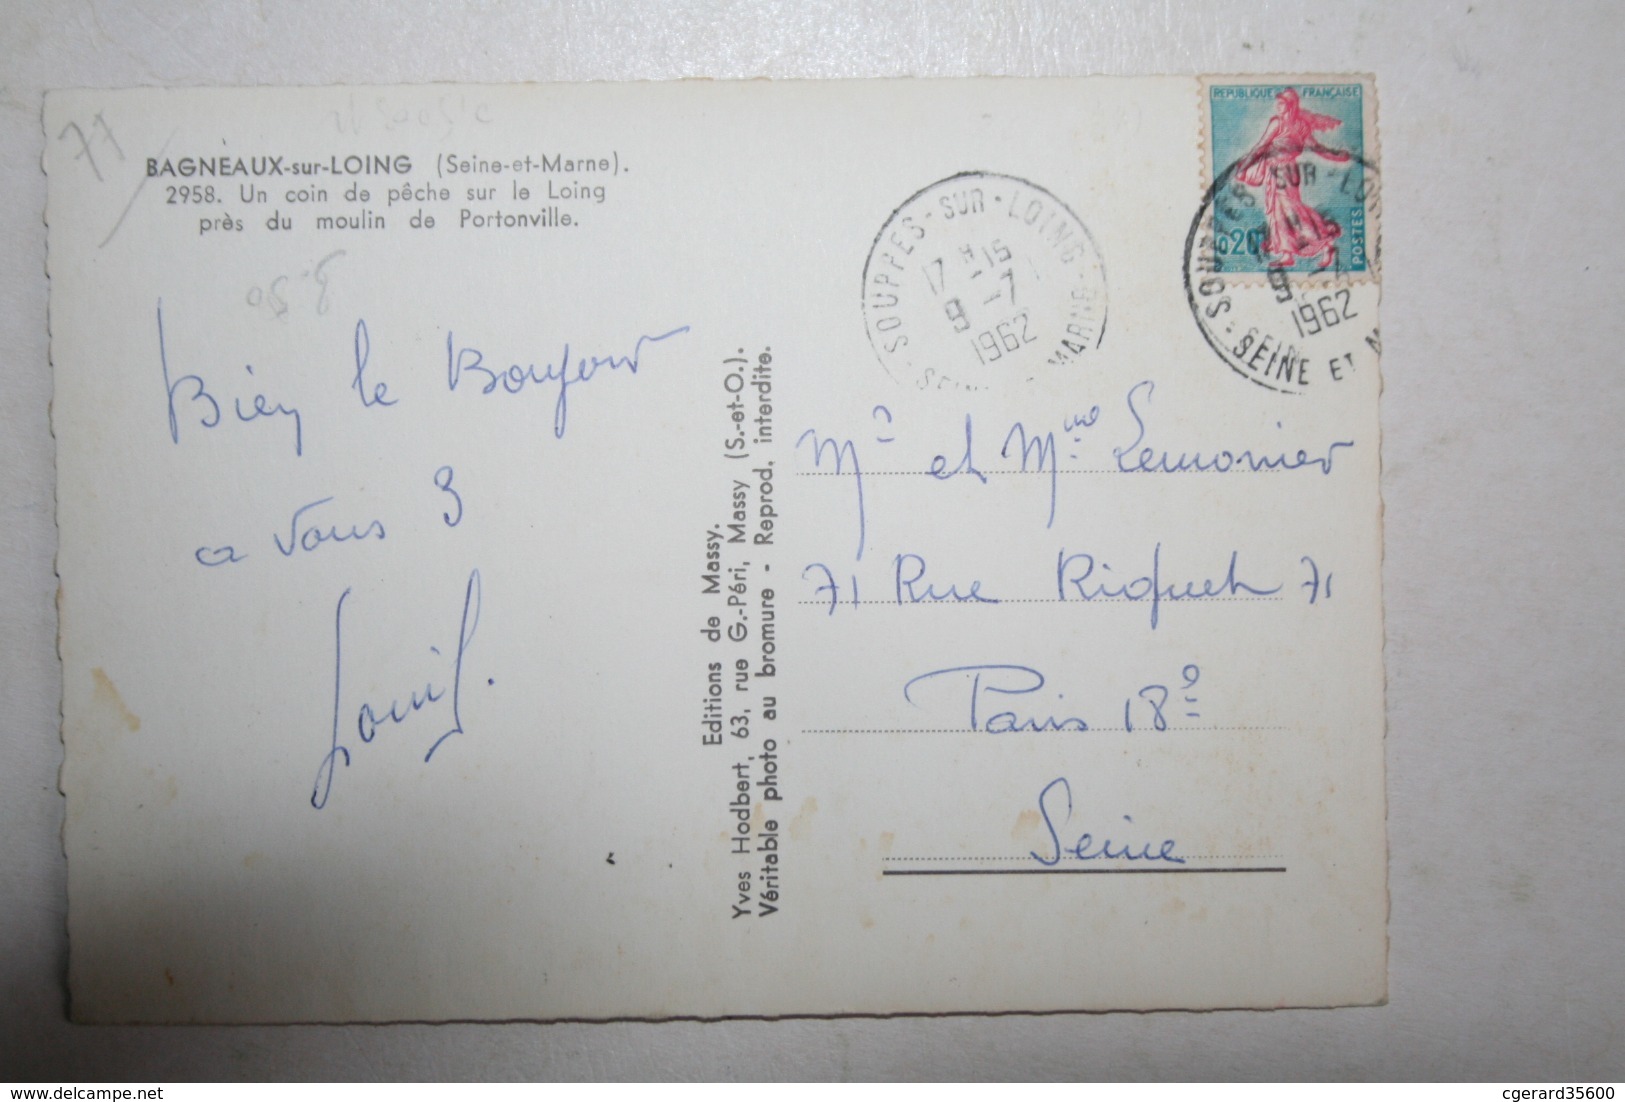 77
BAGNEAUX-sur-LOING (Seine-et-Marne).
2958. Un coin de pêche sur le Loing
près du moulin de Portonville.
Bien le Bonjour
a vous 3
Louis.
Editions de Massy.
Yves Hodbert, 63, rue G.-Péri, Massy (S.-et-O.).
Véritable photo au bromure - Reprod. interdite.
SOUPPES-SUR-LOING
17 H 15
9 -7
1962
SEINE ET MARNE
REPUBLIQUE FRANÇAISE
0,20
POSTES
SOUPPES-SUR-LOI
17 H 15
9 -7
1962
SEINE ET M
Mr et Mme Lemonier
71 Rue Riquet 71
Paris 18e
Seine
delcampe.net
cgerard35600